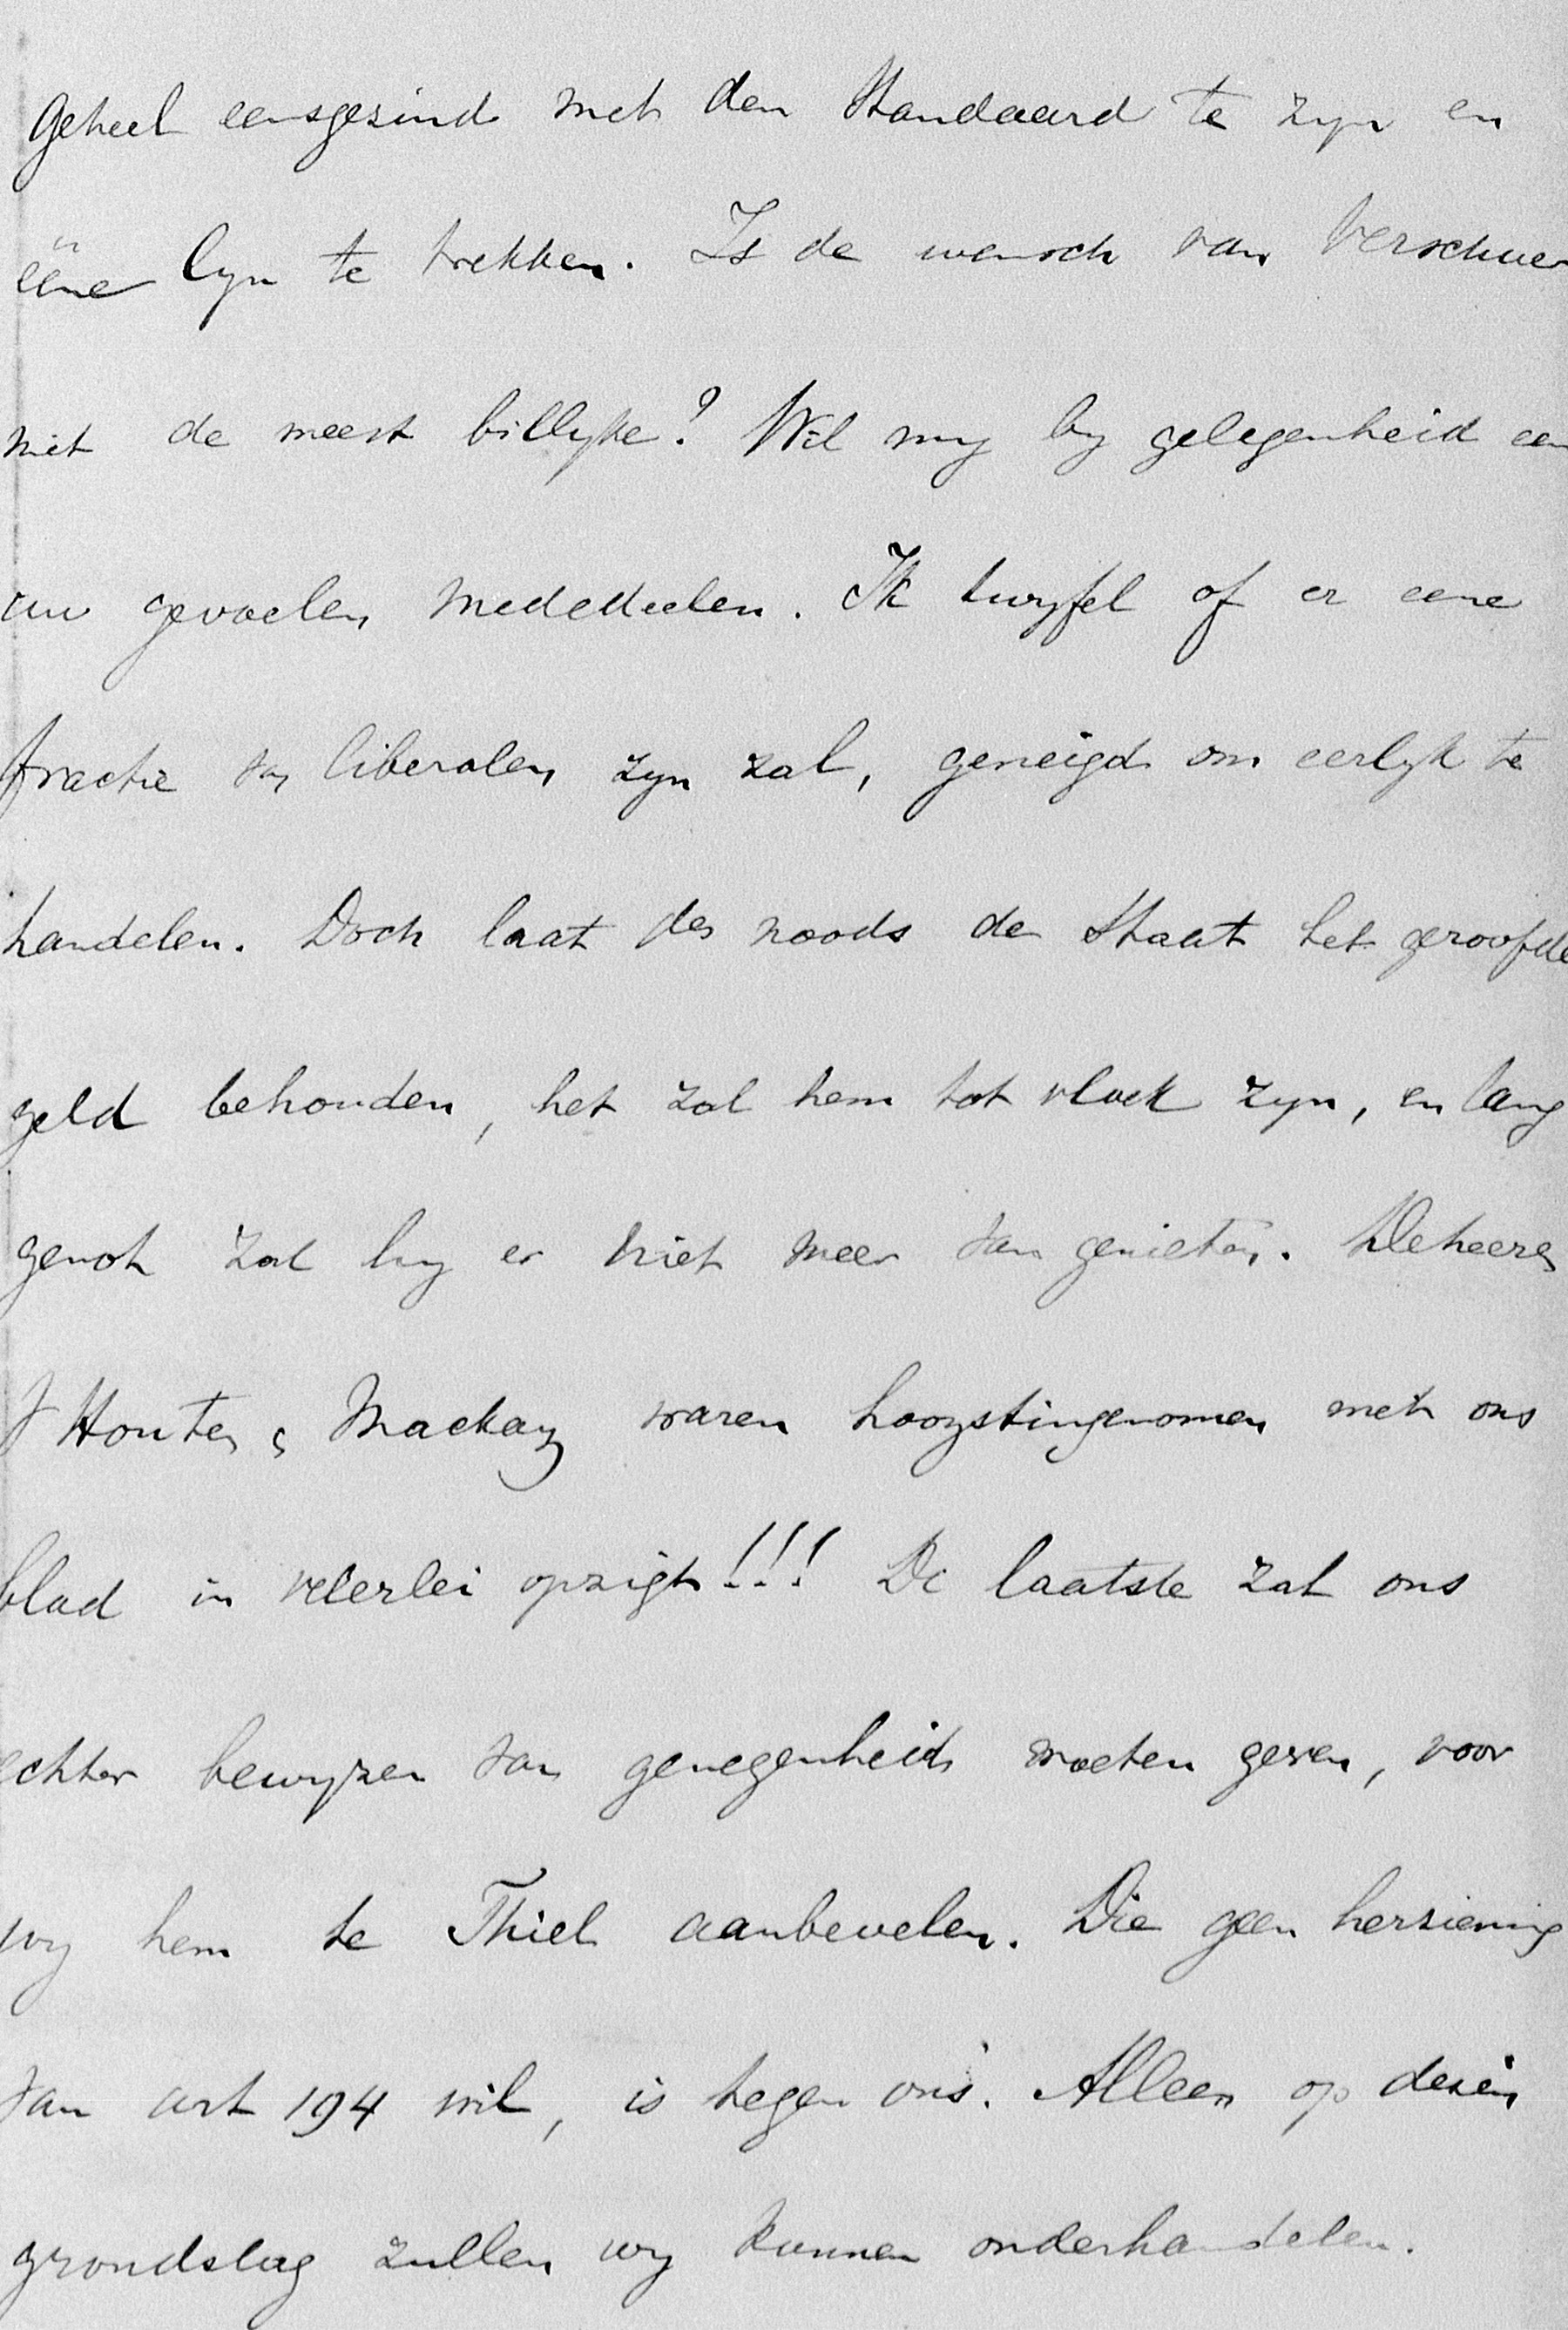 geheel eensgezind met den Standaard te zyn en
ééne lyn te trekken. Is de wensch van Verschuer
niet de meest billyke? Wil my by gelegenheid een
uw gevoelen mededeelen. Ik twyfel of er eene
fractie van liberalen zyn zal, geneigd om eerlyk te
handelen. Doch laat des noods de Staat het geroofde
geld behouden, het zal hem tot vloek zyn, en lang
genot zal hy er niet meer van genieten. De heeren
v Houten & Mackay waren hoogstingenomen met ons
blad in velerlei opzigt!!! De laatste zal ons
echter bewyzen van genegenheid moeten geven, voor
wy hem te Thiel aanbevelen. Die geen herziening
van art 194 wil, is tegen ons. Alleen op dezen
grondslag zullen wy kunnen onderhandelen.